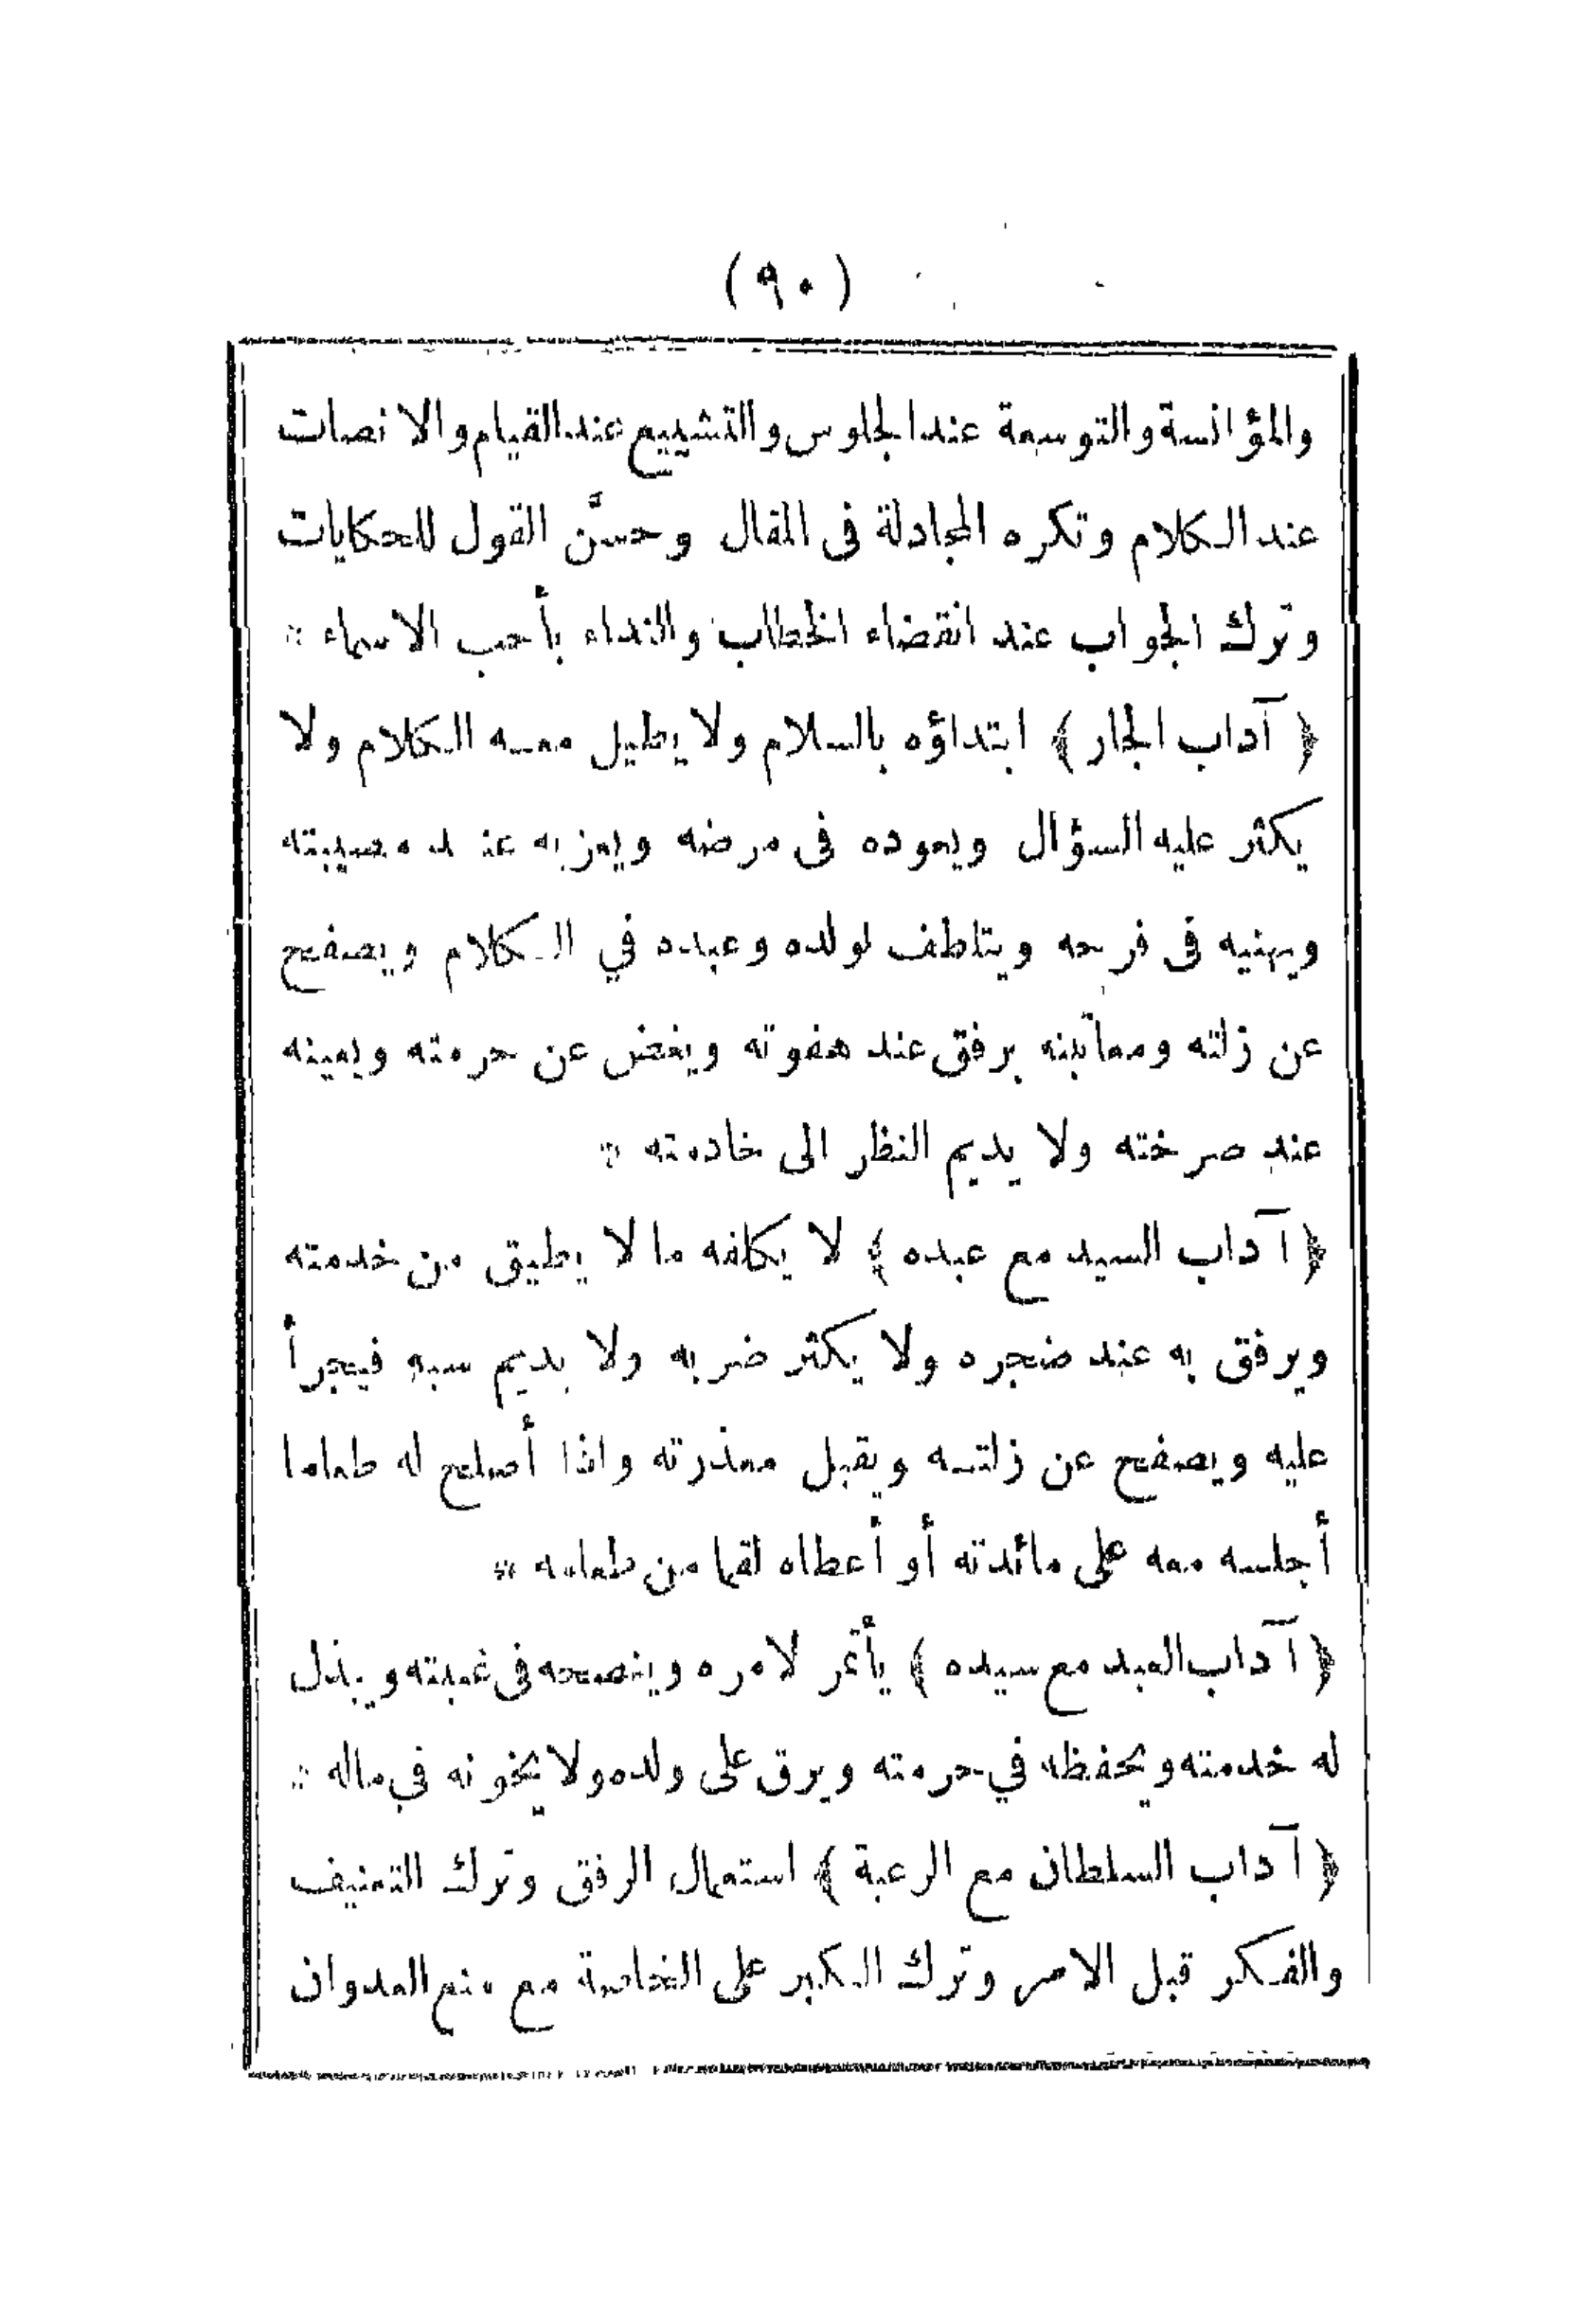 (٩٠)
والمؤانسة والتوسعة عند الجلوس والتشييع عند القيام والانصات
عند الكلام وتكره المجادلة فى المقال وحسَّن القول للحكايات
وترك الجواب عند انقضاء الخطاب والنداء بأحب الاسماء *
﴿ آداب الجار ﴾ ابتداؤه بالسلام ولا يطيل معه الكلام ولا
يكثر عليه السؤال ويعوده فى مرضه ويعزيه عند مصيبته
ويهنيه فى فرحه ويتلطف لولده وعبده في الكلام ويصفح
عن زلته ومعاتبته برفق عند هفوته ويغض عن حرمته ويعينه
عند صرخته ولا يديم النظر الى خادمته *
﴿ آداب السيد مع عبده ﴾ لا يكلفه ما لا يطيق من خدمته
ويرفق به عند ضجره ولا يكثر ضربه ولا يديم سبه فيجرأ
عليه ويصفح عن زلته ويقبل معذرته واذا أصلح له طعاما
أجلسه معه على مائدته أو أعطاه لقما من طعامه *
﴿ آداب العبد مع سيده ﴾ يأتمر لامره وينصحه فى غيبته ويبذل
له خدمته ويحفظه في حرمته ويرق على ولده ولا يخونه في ماله *
﴿ آداب السلطان مع الرعية ﴾ استعمال الرفق وترك التعنيف
والفكر قبل الامر وترك الكبر على الخاصة مع منع العدوان